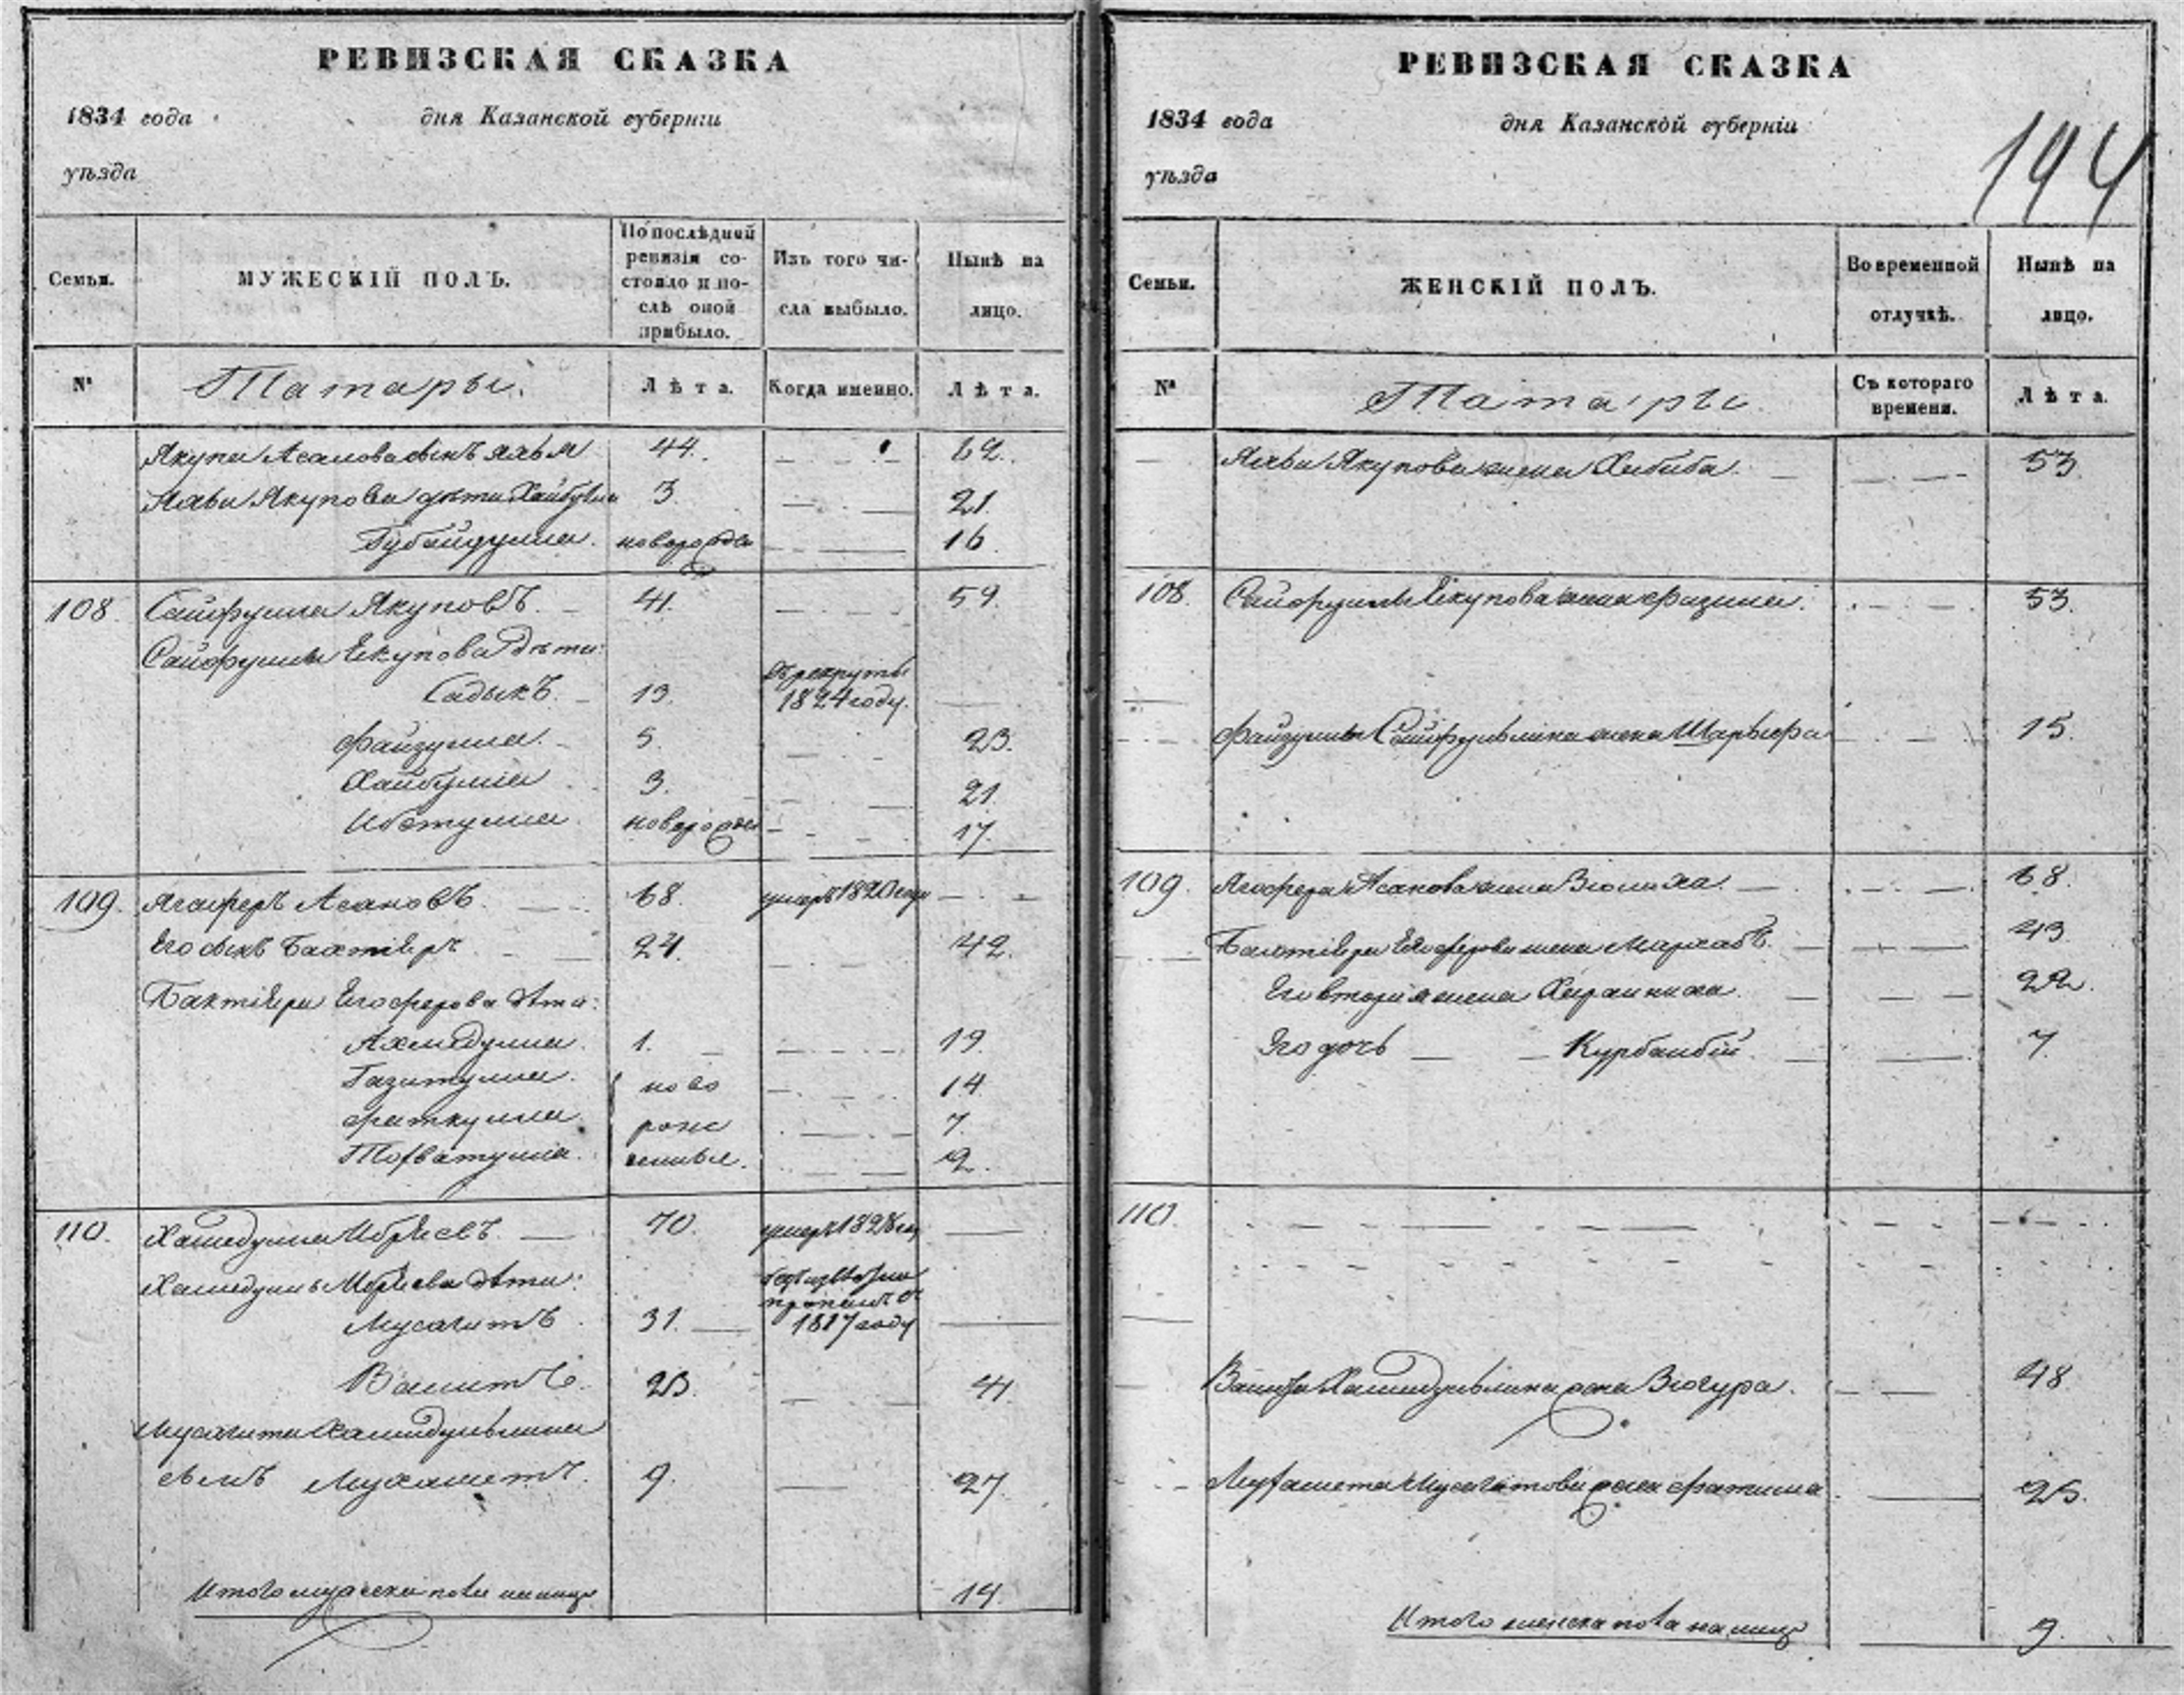 РЕВИЗСКАЯ СКАЗКА
1834 года дня Казанской губернии
уѣзда
Семьи.
МУЖЕСКІЙ ПОЛЪ.
По послѣдней
ревизіи со-
стояло и по-
слѣ оной
прибыло.
Изъ того чи-
сла выбыло.
Нынѣ на
лицо.
№
Татары.
Лѣта.
Когда именно.
Лѣта.
Якупа Асанова сынъ Яхья 44. 62.
Яхьи Якупова дѣти Хайбулла 3. 21.
Губайдулла. новорожде 16.
108. Сайфулла Якуповъ. 41. 59.
Сайфуллы Екупова дѣти:
Садыкъ. 13. въ рекруты
1824 году.
Файзулла. 5. 23.
Хайбулла 3. 21.
Ибетулла. новорожде 17.
109. Ягоферъ Асановъ. 68. умеръ 1820 году
Его сынъ Бахтіеръ. 24. 42.
Бахтіера Егоферова дѣти:
Ахмедулла. 1. 19.
Газитулла. ново 14
Фаткулла рож 7.
Тохватулла. денныя. 2.
110. Хамедулла Ибряевъ. 70. умеръ 1828 го
Хамедуллы Ибряева дѣти:
Мусагитъ 31. пропалъ
1817 году
Вагитъ. 23. 41.
Мусагита Хамидуллина
сынъ Мухаметъ. 9. 27.
Итого мужеска пола на лицо 14.
РЕВИЗСКАЯ СКАЗКА
1834 года дня Казанской губерніи
194
уѣзда
Семьи.
ЖЕНСКІЙ ПОЛЪ.
Во временной
отлучкѣ.
Нынѣ на
лицо.
№
Татары
Съ котораго
времени.
Лѣта.
Яхьи Якупова жена Хабиба. 53.
108. Сайфуллы Екупова жена Фазила. 53.
Файзуллы Сайфулллина жена Шарыфа 15.
109. Ягофера Асанова жена Зюлиха. 68.
Бахтіера Егоферова жена Мархабъ. 43.
Его вторая жена 22.
Его дочь Курбанбій. 7.
110.
Хамидуллина жена Зюгура. 48
Мухамета Мусагитова жена Фатима 25.
Итого женска пола на лицо 9.